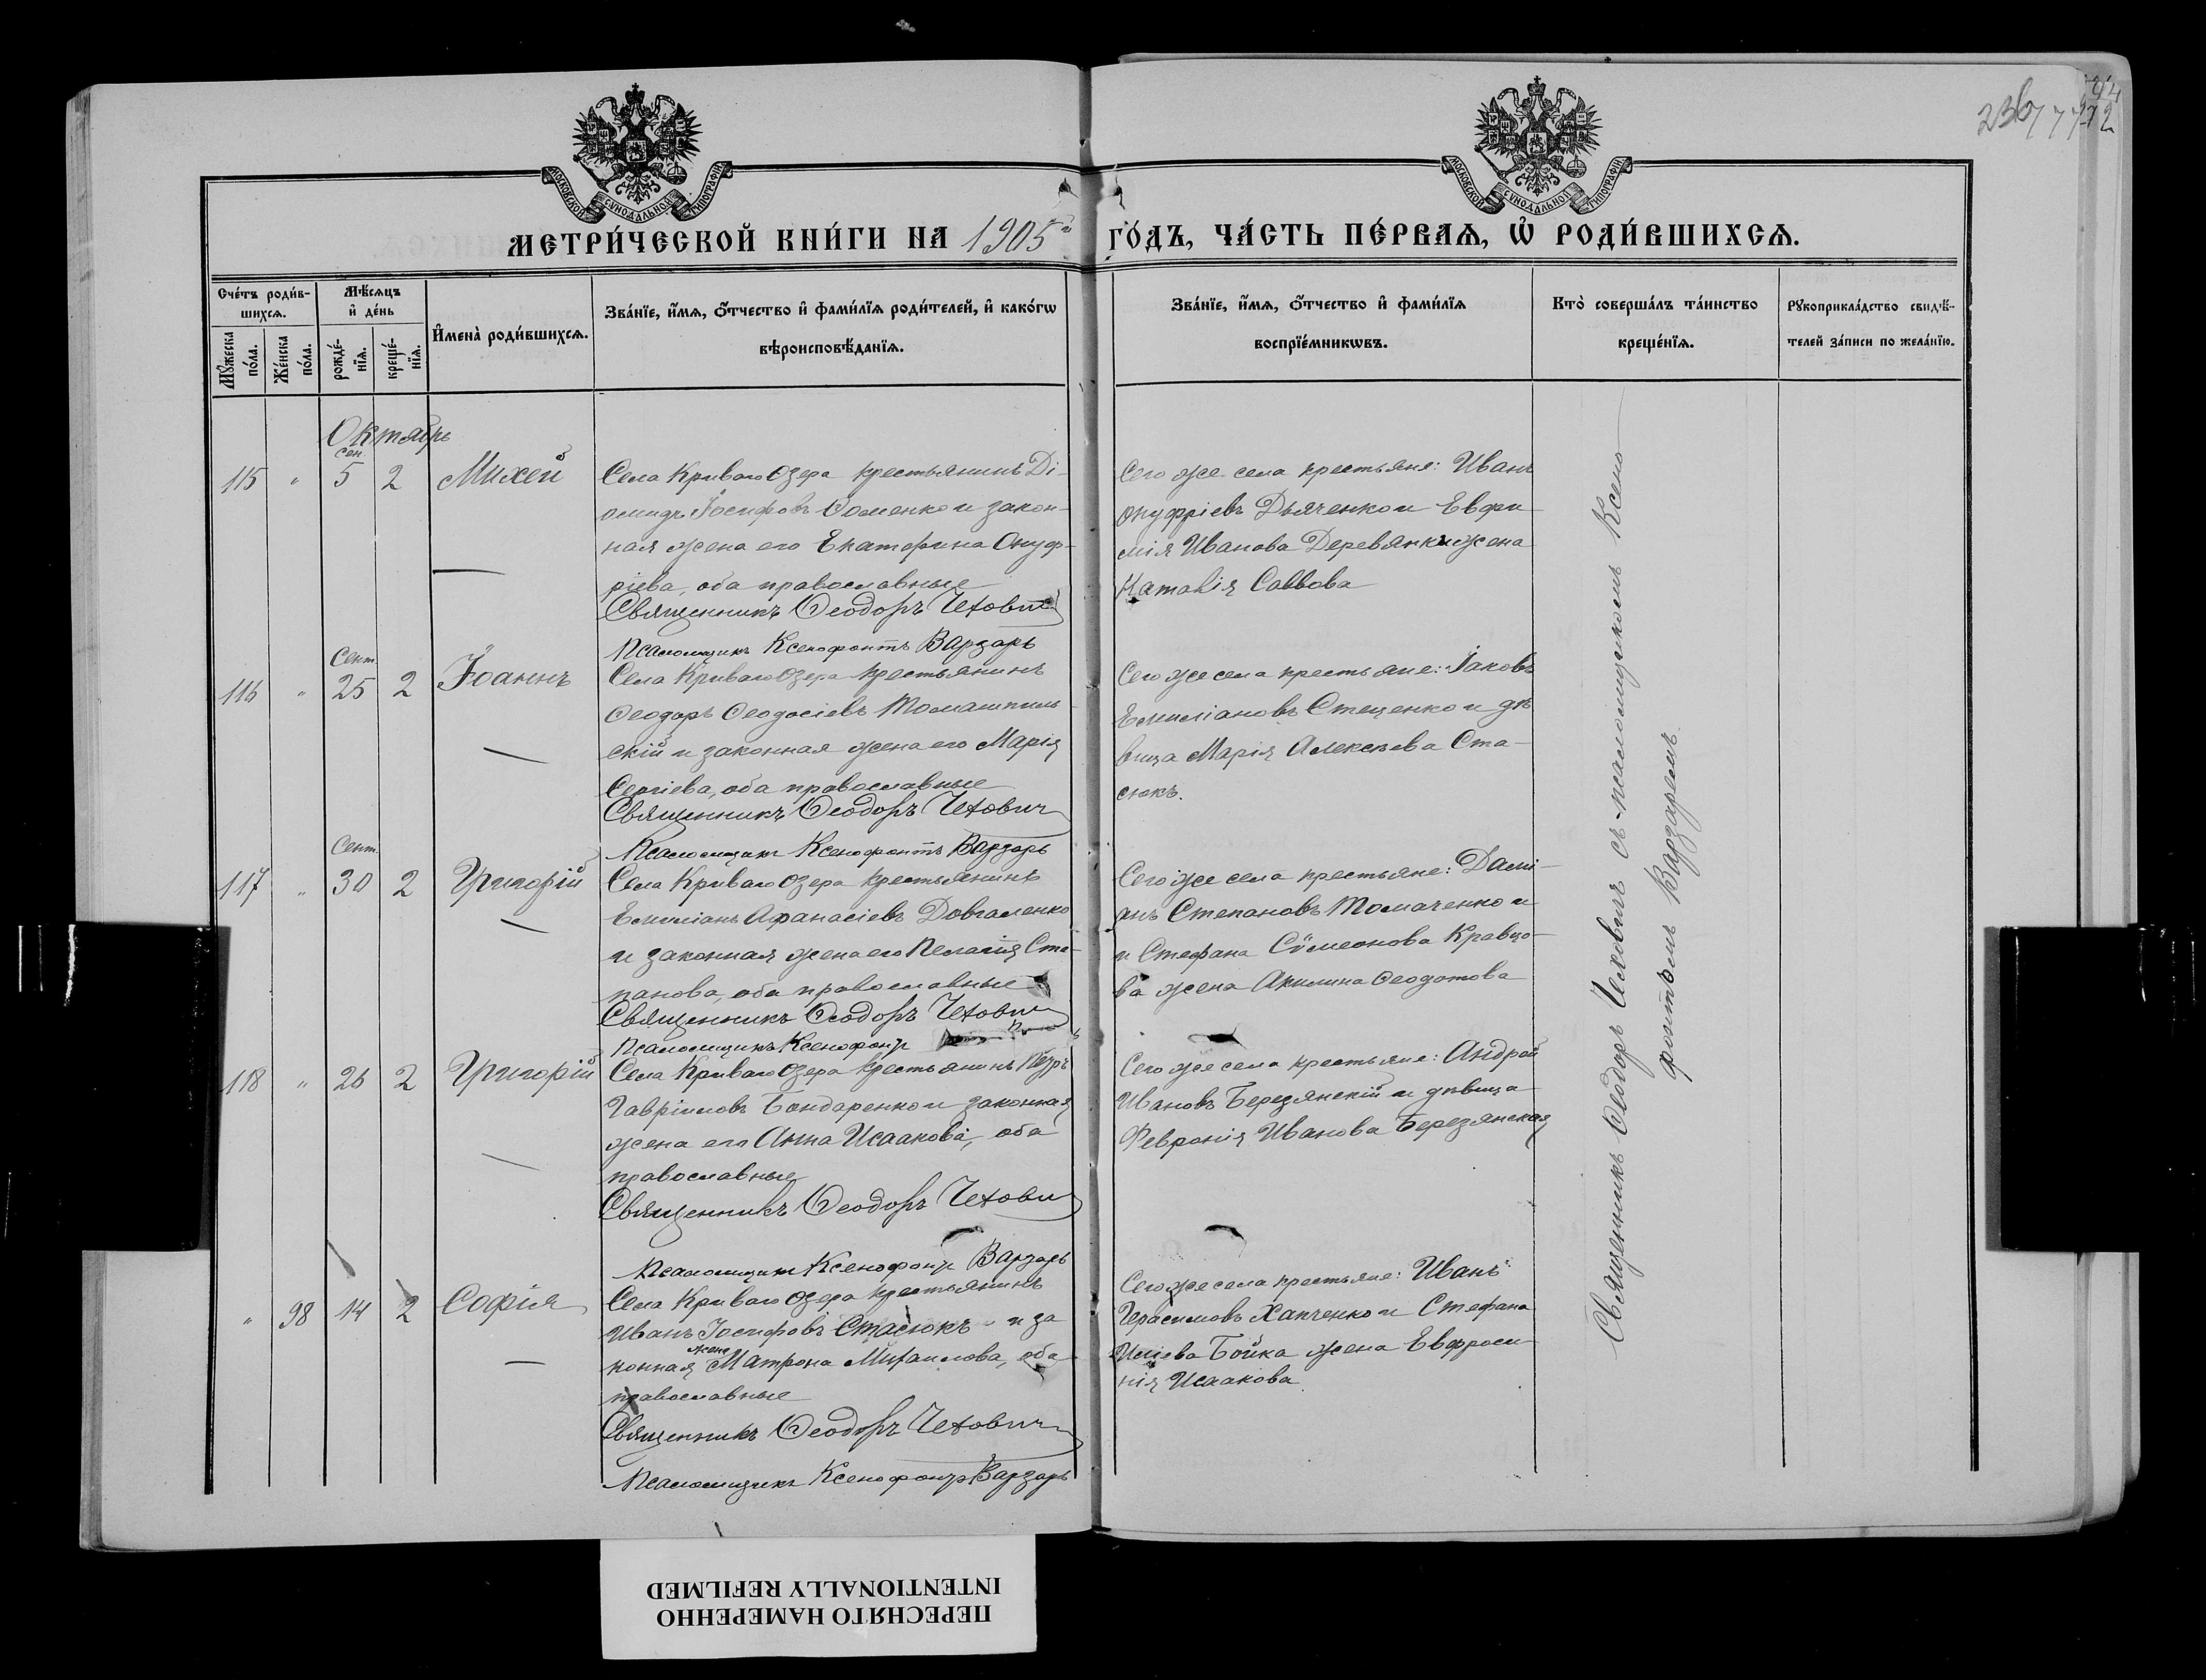 236 77 972
44
МОСКОВСКОЙ СѴНОДАЛЬНОЙ ТИПОГРАФІИ
МОСКОВСКОЙ СѴНОДАЛЬНОЙ ТИПОГРАФІИ
МЕТРИ́ЧЕСКОЙ КНИ́ГИ НА 1905й ГО́ДЪ, ЧА́СТЬ ПЕ́РВАѦ, Ѡ҆ РОДИ́ВШИХСѦ.
Сче́тъ роди́в-
шихсѧ.
Мꙋ́жеска по́ла.
Же́нска по́ла.
Мѣ́сѧцъ
и҆ де́нь
рожде́-
нїѧ.
креще́-
нїѧ.
И҆мена̀ роди́вшихсѧ.
Зва́нїе, и҆́мѧ, ѻ҆́тчество и҆ фами́лїѧ роди́телей, и҆ како́гѡ
вѣроисповѣ́данїѧ.
Зва́нїе, и҆́мѧ, ѻ҆́тчество и҆ фами́лїѧ
воспрїе́мникѡвъ.
Кто̀ соверша́лъ та́инство
креще́нїѧ.
Рꙋкоприкла́дство свидѣ́-
телей за́писи по жела́нїю.
Октябрь
115 " сен. 5 2 Михей
Села Криваго Озера крестьянинъ Ді-
омидъ Іосифовъ Соменко и закон-
ная жена его Екатерина Онуф-
ріева, оба православные
Священникъ Ѳеодоръ Чехович
Псаломщикъ Ксенофонтъ Варзарь
Сего же села крестьяне: Иванъ
Онуфріевъ Дьяченко и Евфи
мія Иванова Деревянки жена
Наталія Саввова
116 " Сент. 25 2 Іоаннъ
Села Криваго Озера крестьянинъ
Ѳеодоръ Ѳеодосіевъ Томашполь-
скій и законная жена его Марія
Сергіева, оба православные
Священникъ Ѳеодоръ Чехович
Псаломщикъ Ксенофонтъ Варзарь
Сего же села крестьяне: Іаковъ
Емиліановъ Стеценко и дѣ
вица Марія Алексѣева Ста-
сюкъ.
117 " Сент. 30 2 Григорій
Села Криваго Озера крестьянинъ
Емиліанъ Афанасіевъ Довгаленко
и законная жена его Пелагія Сте-
панова, оба православные
Священникъ Ѳеодоръ Чехович
Псаломщикъ Ксенофонт
Сего же села крестьяне: Дамі-
анъ Степановъ Томаченко и
и Стефана Сѵмеонова Кравцо-
ва жена Акилина Ѳеодотова
118 " 26 2 Григорій
Села Криваго Озера крестьянинъ Петръ
Гавріиловъ Бондаренко и законная
жена его Анна Исаакова, оба
православные
Священникъ Ѳеодоръ Чехович
Псаломщикъ Ксенофонт Варзарь
Сего же села крестьяне: Андрей
Ивановъ Березянскій и дѣвица
Февронія Иванова Березянская
" 98 14 2 Софія
Села Криваго Озера крестьянинъ
Иванъ Іосифовъ Стасюкъ и за
конная жена Матрона Михаилова, оба
православные
Священникъ Ѳеодоръ Чехович
Псаломщикъ Ксенофонт Варзарь
Сего же села крестьяне: Иванъ
Герасимовъ Хапченко и Стефана
Иліева Бойка жена Евфроси
нія Исаакова.
Священникъ Ѳеодоръ Чеховичъ съ псаломщикомъ Ксено
фонтомъ Варзаремъ.
ПЕРЕСНЯТО НАМЕРЕННО
INTENTIONALLY REFILMED